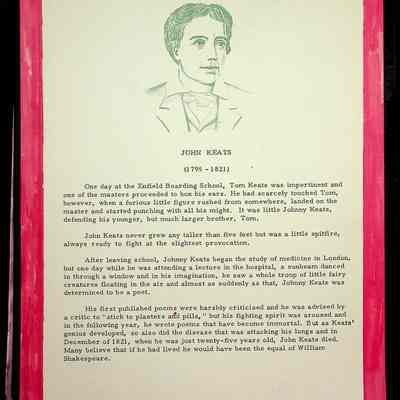 JOHN KEATS
(1795 - 1821)
One day at the Enfield Boarding School, Tom Keats was impertinent and
one of the masters proceeded to box his ears. He had scarcely touched Tom,
however, when a furious little figure rushed from somewhere, landed on the
master and started punching with all his might. It was little Johnny Keats,
defending his younger, but much larger brother, Tom.
John Keats never grew any taller than five feet but was a little spitfire,
always ready to fight at the slightest provocation.
After leaving school, Johnny Keats began the study of medicine in London,
but one day while he was attending a lecture in the hospital, a sunbeam danced
in through a window and in his imagination, he saw a whole troop of little fairy
creatures floating in the air and almost as suddenly as that, Johnny Keats was
determined to be a poet.
His first published poems were harshly criticised and he was advised by
a critic to "stick to plasters and pills," but his fighting spirit was aroused and
in the following year, he wrote poems that have become immortal. But as Keats'
genius developed, so also did the disease that was attacking his lungs and in
December of 1821, when he was just twenty-five years old, John Keats died.
Many believe that if he had lived he would have been the equal of William
Shakespeare.